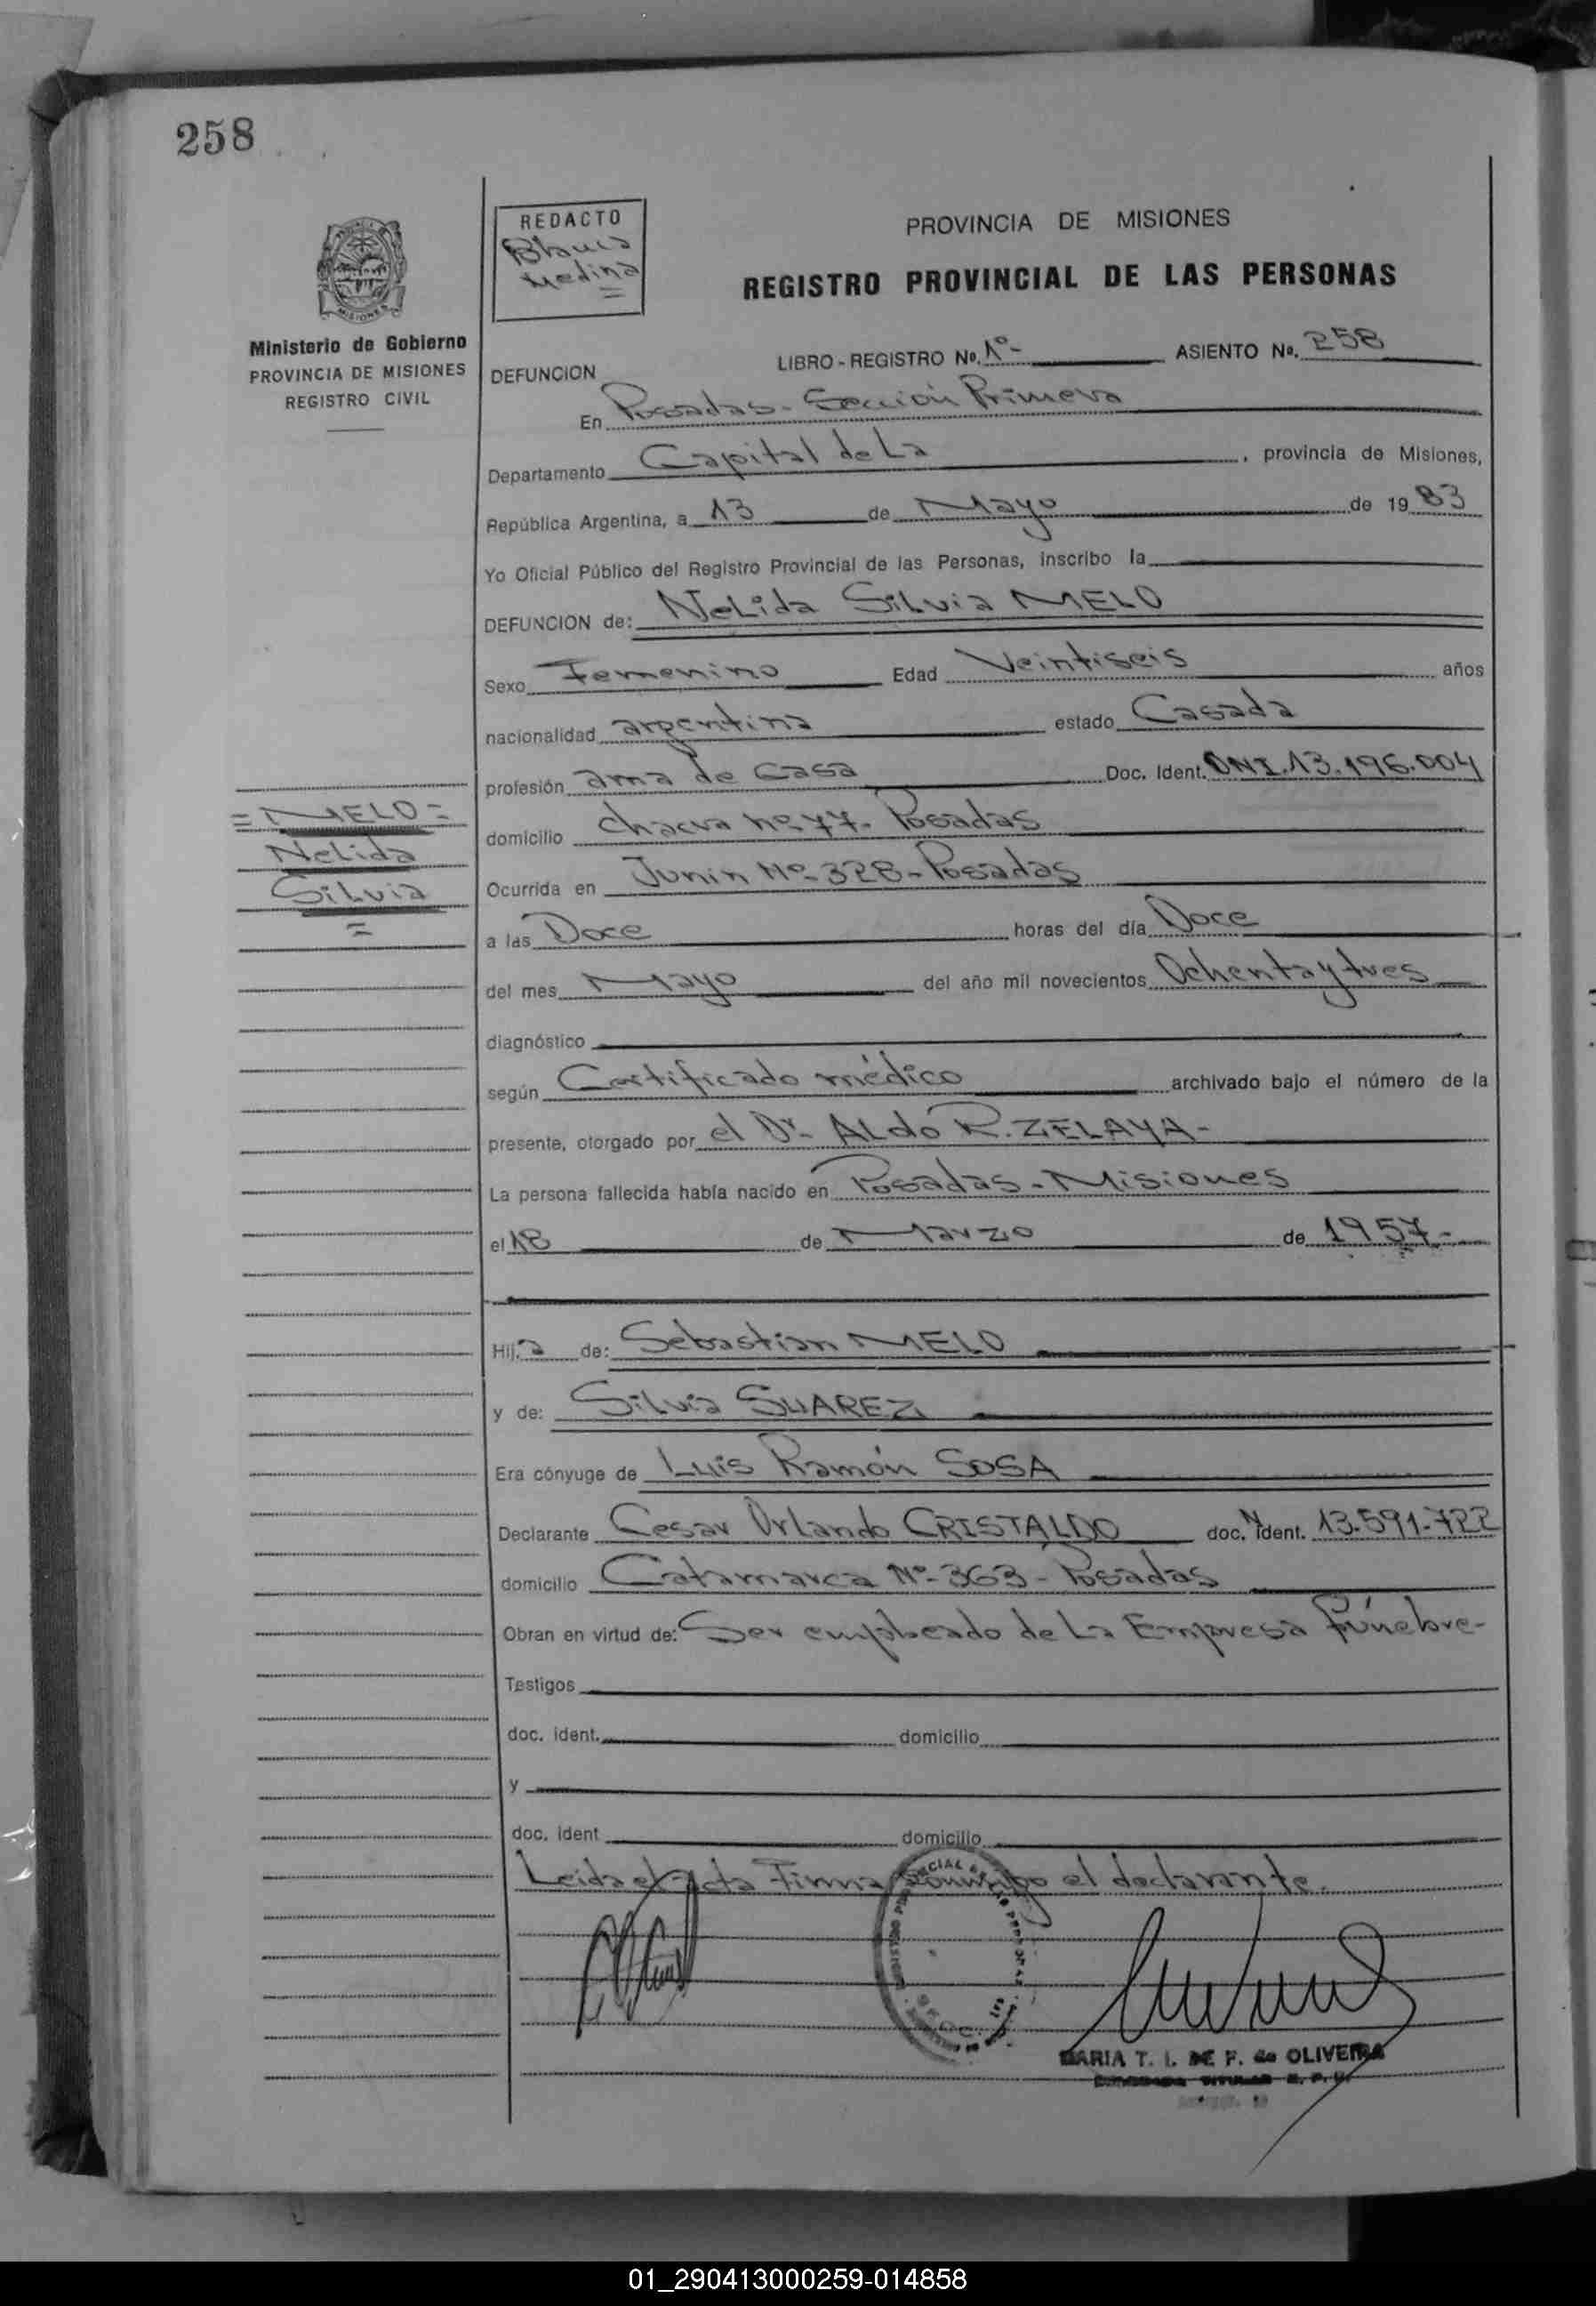 258
REDACTO
Blanca
Medina
PROVINCIA DE MISIONES
REGISTRO PROVINCIAL DE LAS PERSONAS
MISIONES
Ministerio de Gobierno
PROVINCIA DE MISIONES
REGISTRO CIVIL
LIBRO - REGISTRO No. 1º- ASIENTO No. 258
DEFUNCION
En Posadas - Sección Primera
Departamento Capital de La , provincia de Misiones,
República Argentina, a 13 de Mayo de 1983
Yo Oficial Público del Registro Provincial de las Personas, inscribo la
DEFUNCION de: Nelida Silvia MELO
Sexo Femenino Edad Veintiseis años
nacionalidad argentina estado Casada
profesión ama de casa Doc. Ident. DNI. 13.196.004
= MELO =
Nelida
Silvia
=
domicilio chacra nº 77- Posadas
Ocurrida en Junin Nº- 328 - Posadas
a las Doce horas del día Doce
del mes Mayo del año mil novecientos Ochenta y tres
diagnóstico
según Certificado médico archivado bajo el número de la
presente, otorgado por el Dr. Aldo R. ZELAYA -
La persona fallecida había nacido en Posadas - Misiones
el 18 de Marzo de 1957 -
Hij a de: Sebastian MELO
y de: Silvia SUAREZ
Era cónyuge de Luis Ramón SOSA
Declarante Cesar Orlando CRISTALDO doc. N ident. 13.591.722
domicilio Catamarca Nº- 363 - Posadas
Obran en virtud de: Ser empleado de La Empresa fúnebre -
Testigos
doc. ident. domicilio
y
doc. ident domicilio
Leida el Acta Firma conmigo el declarante.
MARIA T. I. DE F. de OLIVEIRA
01_290413000259-014858